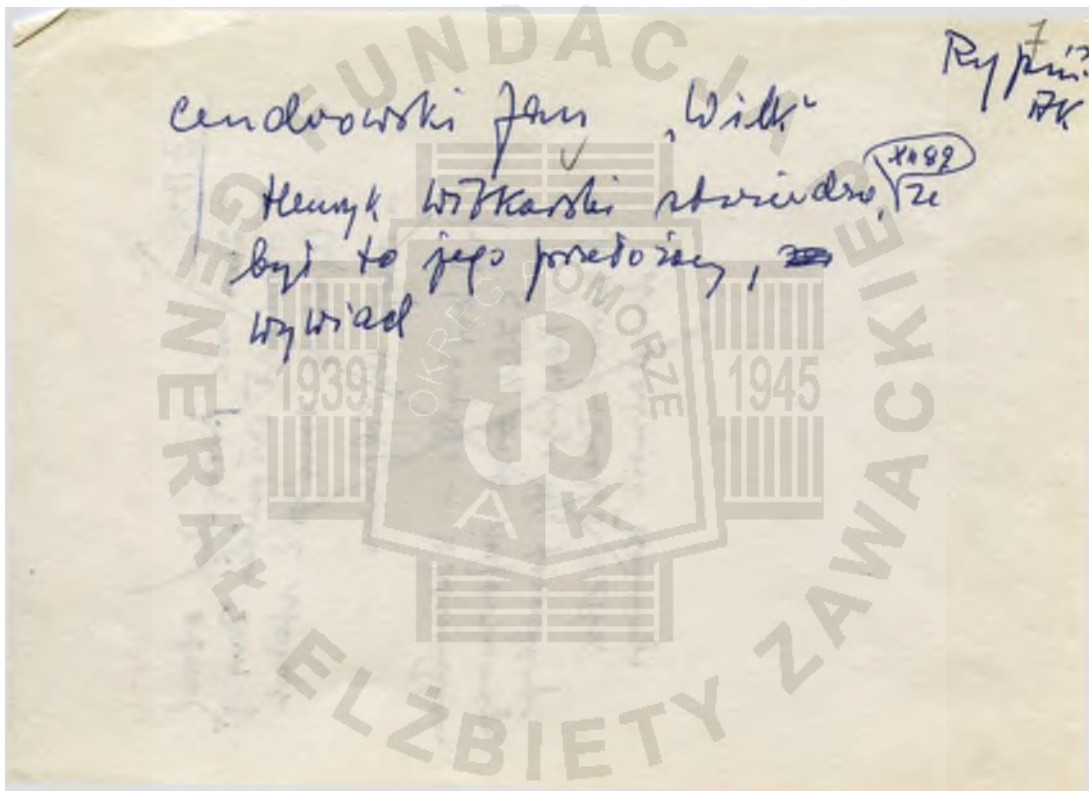 7
Rypin
AK
Cendrowski Jan "Wilk"
XII 89
Henryk Witkowski stwierdza, że
był to jego przełożony,
wywiad
FUNDACJA
GENERAŁ ELŻBIETY ZAWACKIEJ
OKRĘG POMORZE
1939 1945
AK